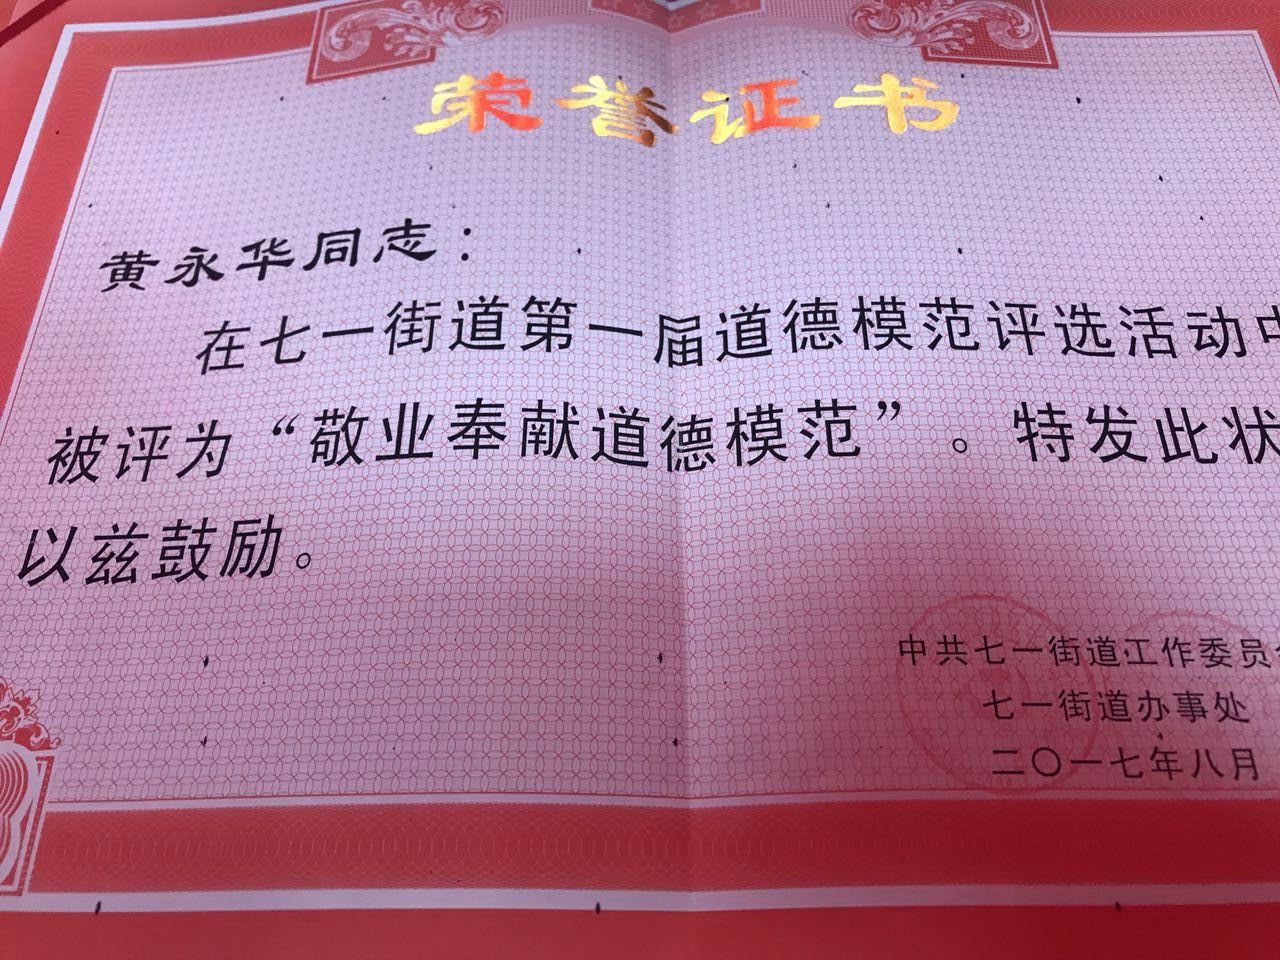 荣誉证书
黄永华同志：
在七一街道第一届道德模范评选活动中
被评为“敬业奉献道德模范”。特发此状
以兹鼓励。
中共七一街道工作委员
七一街道办事处
二〇一七年八月